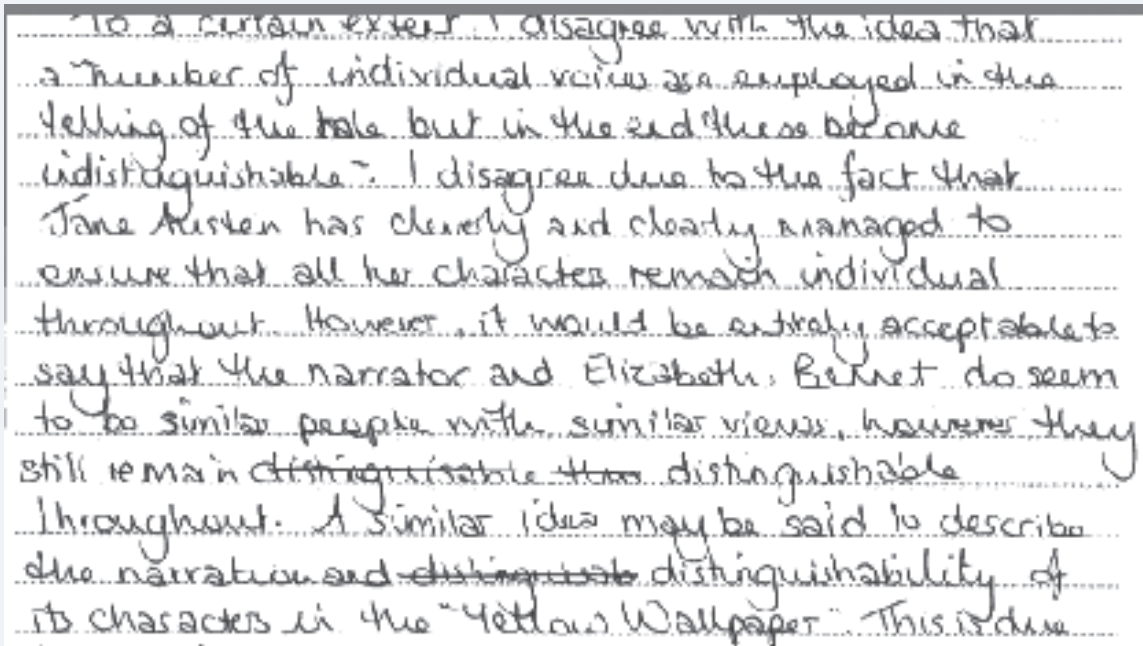 To a certain extent I disagree with the idea that
a "number of individual voices are employed in the
telling of the tale but in the end these become
indistinguishable". I disagree due to the fact that
Jane Austen has cleverly and clearly managed to
ensure that all her characters remain individual
throughout. However, it would be entirely acceptable to
say that the narrator and Elizabeth Bennet do seem
to be similar people with similar views, however they
still remain distinguisable thro distinguishable
throughout. A similar idea may be said to describe
the narration and distinguisab distinguishability of
its characters in the "Yellow Wallpaper". This is due